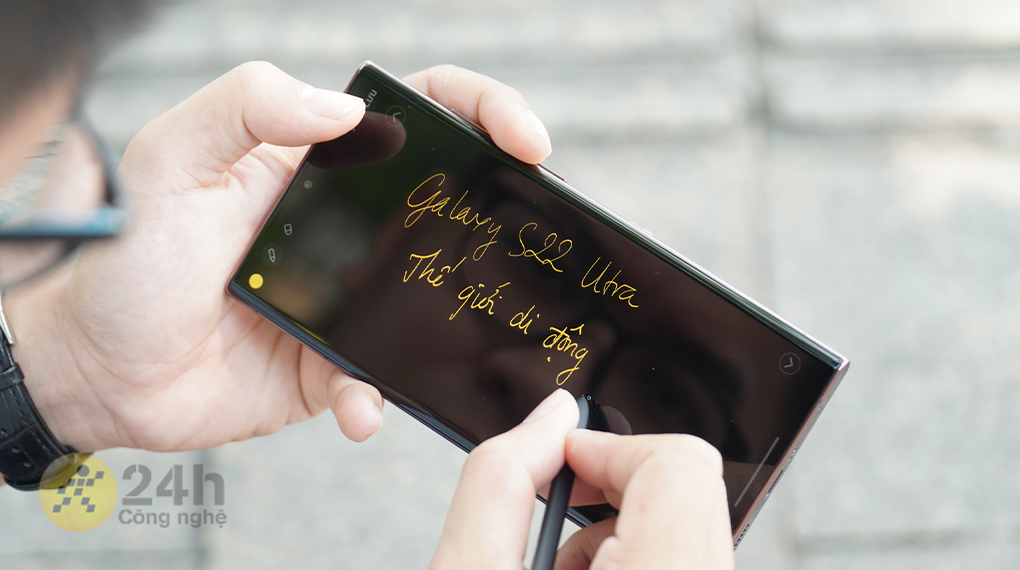 Lưu
Galaxy S22 Ultra
Thế giới di động
24h
Công nghệ